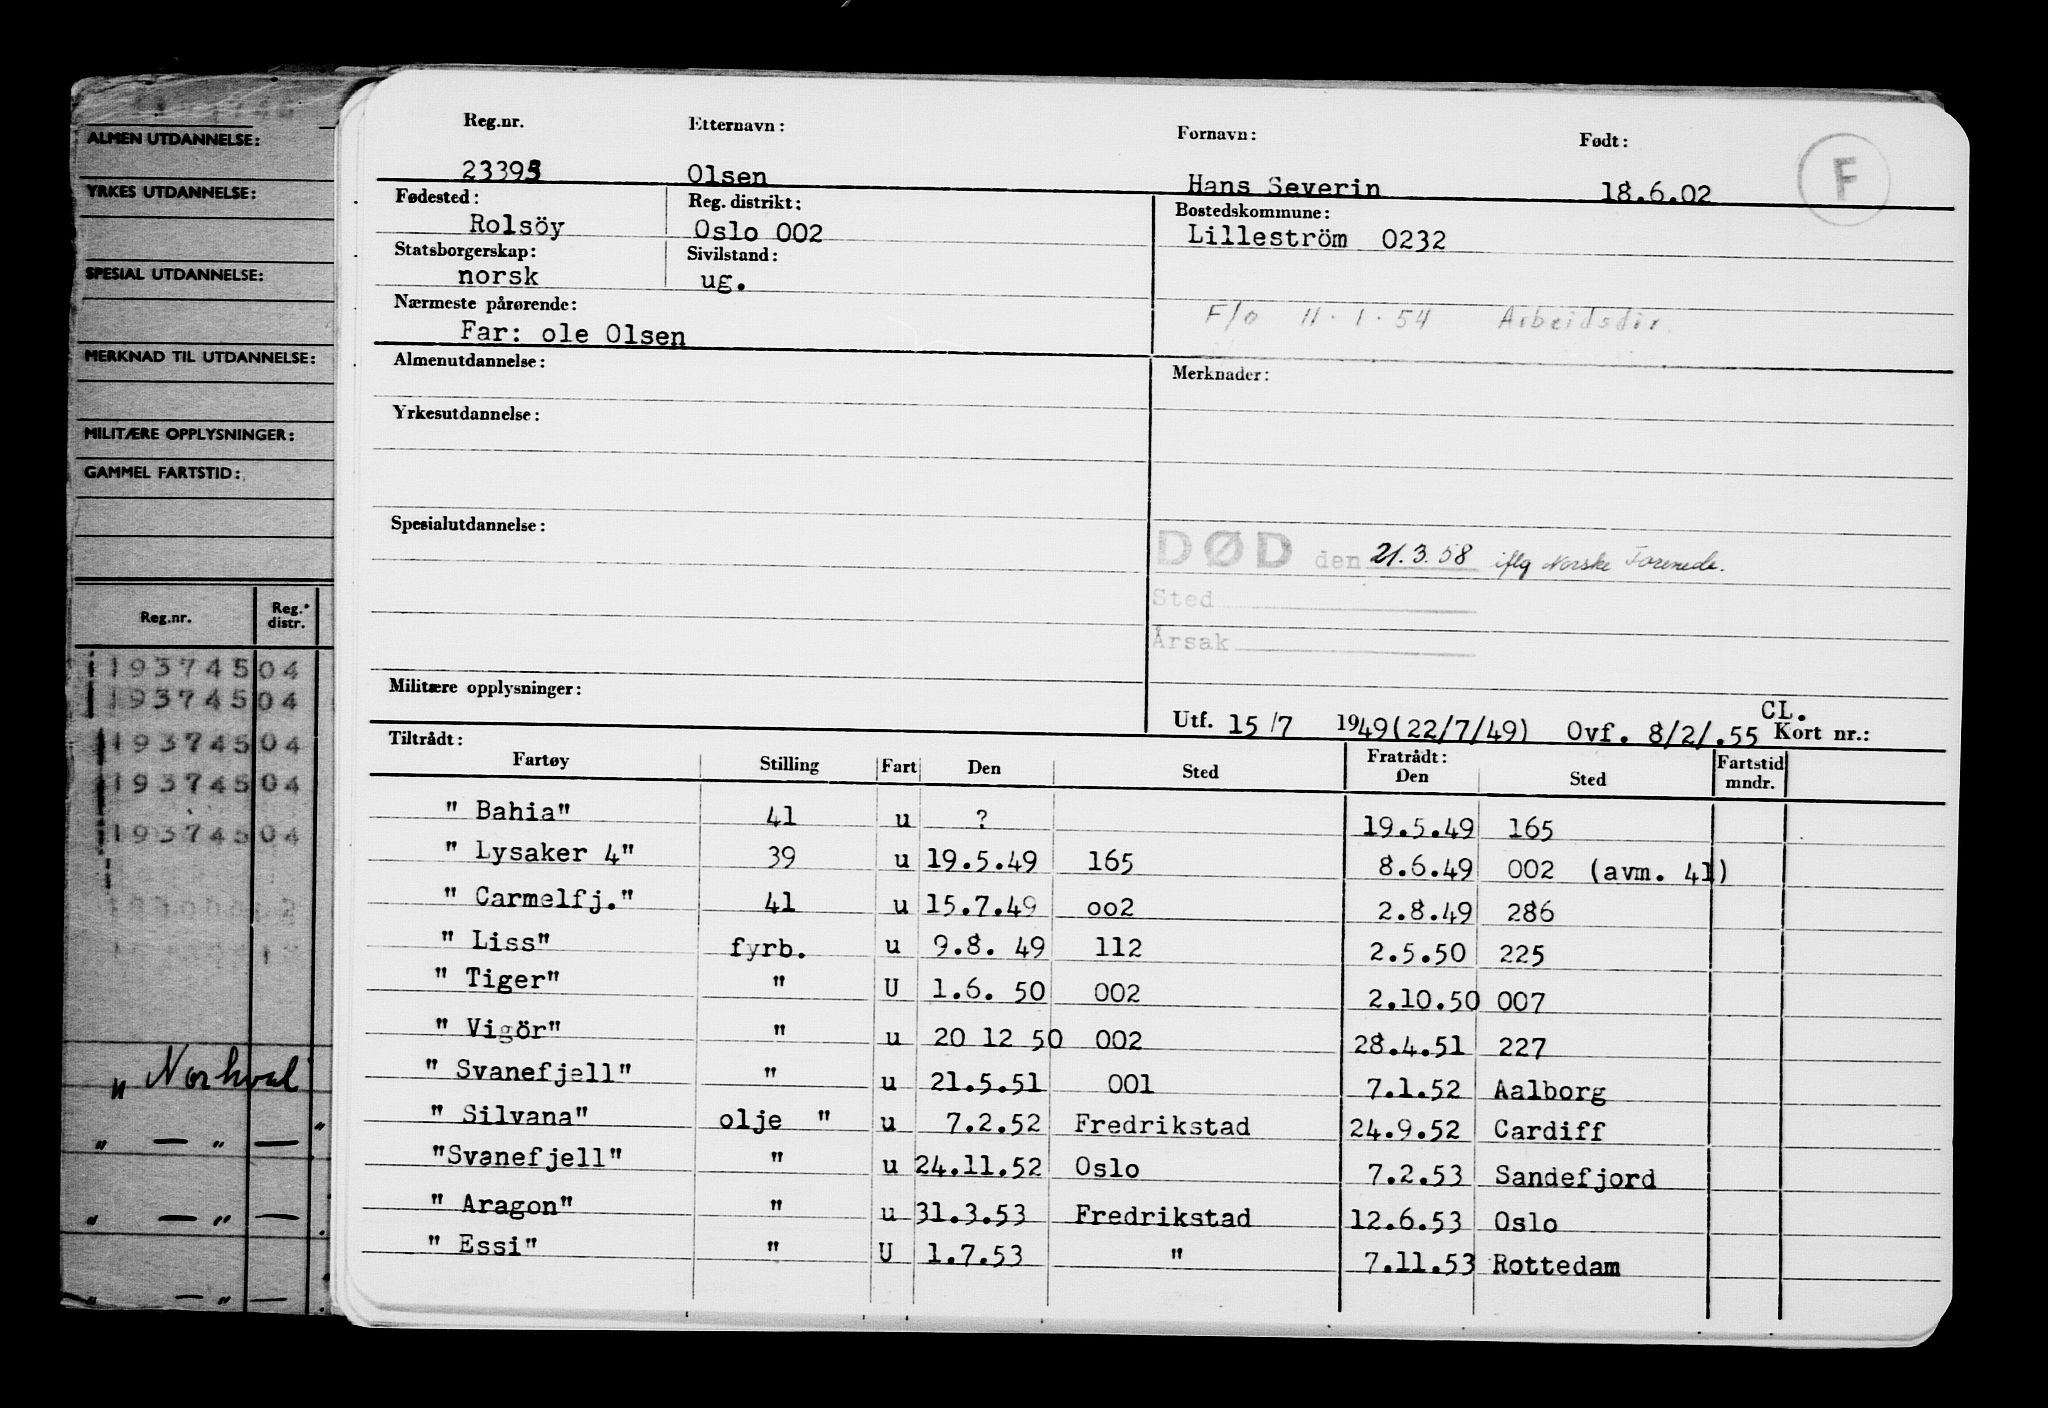 ALMEN UTDANNELSE:
YRKES UTDANNELSE:
SPESIAL UTDANNELSE:
MERKNAD TIL UTDANNELSE:
MILITÆRE OPPLYSNINGER:
GAMMEL FARTSTID:
Reg.nr. Reg. distr.
193745 04
193745 04
193745 04
193745 04
193745 04
„ Norhval
„ — „ —
„ — „ —
„ — „ —
Reg.nr. Etternavn: Fornavn: Født:
23395 Olsen Hans Severin 18.6.02 F
Fødested: Reg. distrikt: Bostedskommune:
Rolsöy Oslo 002 Lilleström 0232
Statsborgerskap: Sivilstand:
norsk ug.
Nærmeste pårørende: F/o 11.1.54 Arbeidsdir.
Far: ole Olsen
Almenutdannelse: Merknader:
Yrkesutdannelse:
Spesialutdannelse:
DØD den 21.3.58 iflg Norske Forenede.
Sted
Årsak
Militære opplysninger:
Utf. 15/7 1949(22/7/49) Ovf. 8/2/.55 CL. Kort nr.:
Tiltrådt: Fratrådt:
Fartøy Stilling Fart Den Sted Den Sted Fartstid mndr.
" Bahia" 41 u ? 19.5.49 165
" Lysaker 4" 39 u 19.5.49 165 8.6.49 002 (avm. 41)
" Carmelfj." 41 u 15.7.49 oo2 2.8.49 286
" Liss" fyrb. u 9.8. 49 112 2.5.50 225
" Tiger" " U 1.6. 50 002 2.10.50 007
" Vigör" " u 20 12 50 002 28.4.51 227
" Svanefjell" " u 21.5.51 001 7.1.52 Aalborg
" Silvana" olje " u 7.2.52 Fredrikstad 24.9.52 Cardiff
"Svanefjell" " u 24.11.52 Oslo 7.2.53 Sandefjord
" Aragon" " u 31.3.53 Fredrikstad 12.6.53 Oslo
" Essi" " U 1.7.53 " 7.11.53 Rottedam